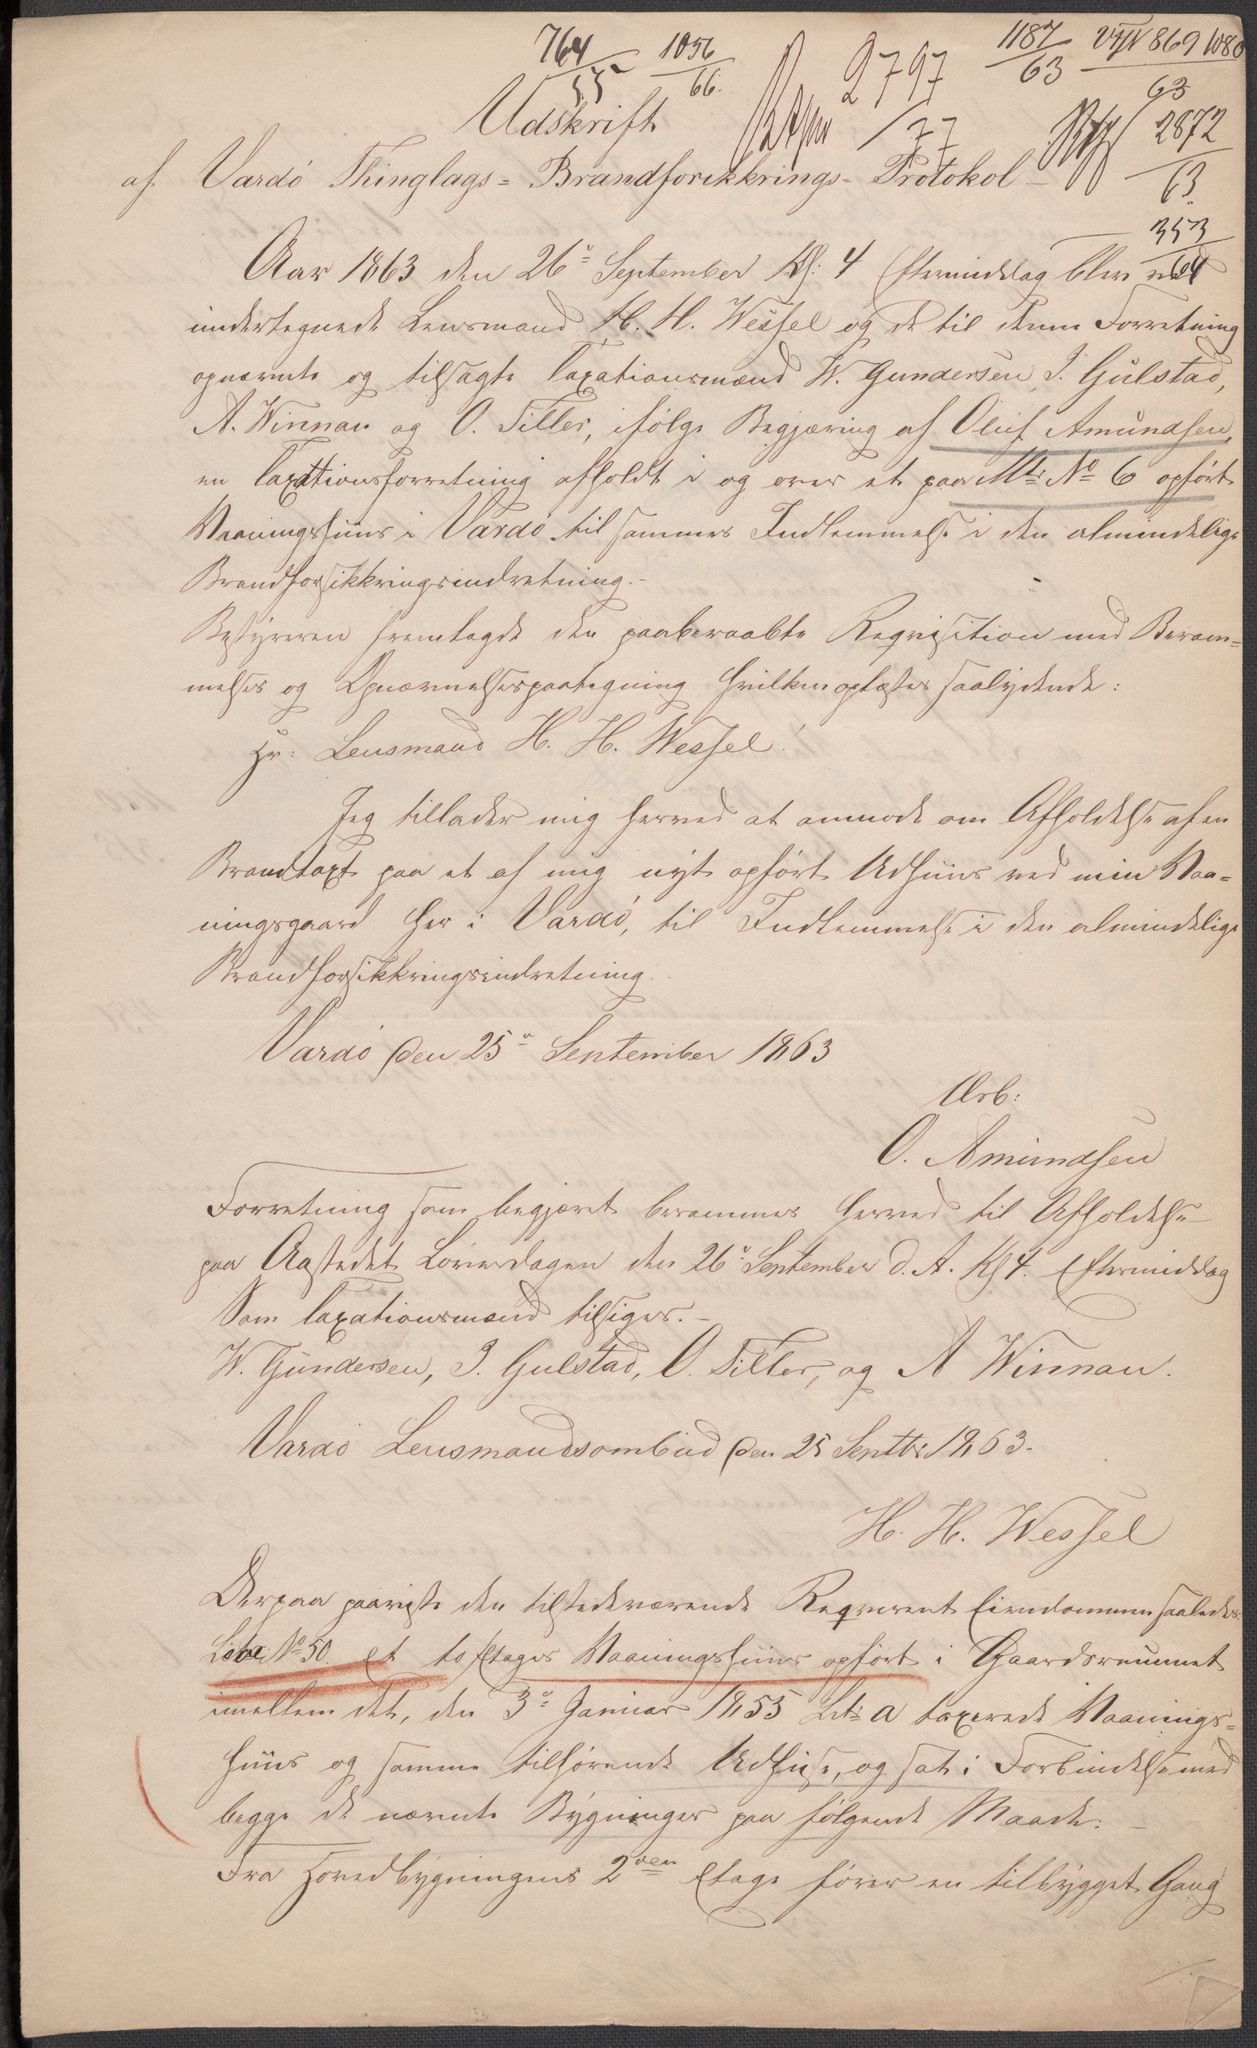 764/55 1056/66. 2797/77 1187/63 869 1080/63
Udskrift 2872/63
af Vardö Thinglags= Brandforsikkrings= Protokol 353/64
Aar 1863 den 26de September Kl: 4 Eftermiddag blev ved
undertegnede Lensmand H. H. Wessel og de til denne Forretning
opnævnte og tilsagte Taxationsmænd W. Gundersen, J. Gulstad,
A. Winnan og O. Tiller, ifølge Begjæring af Oluf Amundsen,
en Taxationsforretning afholdt i og over et paa Mtr: No 6 opført
Vaaningshuus i Vardö til sammes Indlemmelse i den almindelige
Brandforsikkringsindretning.-
Bestyreren fremlagde den paaberaabte Reqvisition med Beram=
melses og Opnævnelsespaategning hvilken oplæstes saalydende:
Hr: Lensmand H. H. Wessel!
Jeg tillader mig herved at anmode om Afholdelse af en
Brandtaxt paa et af mig nyt opført Udhuus ved min Vaa=
ningsgaard her i Vardö, til Indlemmelse i den almindelige
Brandforsikkringsindretning.
Vardö den 25de September 1863
Ærb:
O. Amundsen
Forretning som begjæret berammes herved til Afholdelse
paa Aastedet Löverdagen den 26de September d. A. Kl 4. Eftermiddag
Som Taxationsmænd tilsiges.-
W. Gundersen, J. Gulstad, O. Tiller, og A Winnan.
Vardö Lensmandsombud den 25 Septbr 1863.
H. H. Wessel
Derpaa paaviste den tilstedeværende Reqvirent Eiendommen saaledes:
No 50. et to Etages Vaaningshuus opført i Gaardsrummet
imellem det, den 3de Januar 1855 Litr: a taxerede Vaanings=
huus og samme tilhørende Udhuse, og sat i Forbindelse med
begge de nævnte Bygninger paa følgende Maade:
Fra Hovedbygningens 2den Etage fører en tilbygget Gang